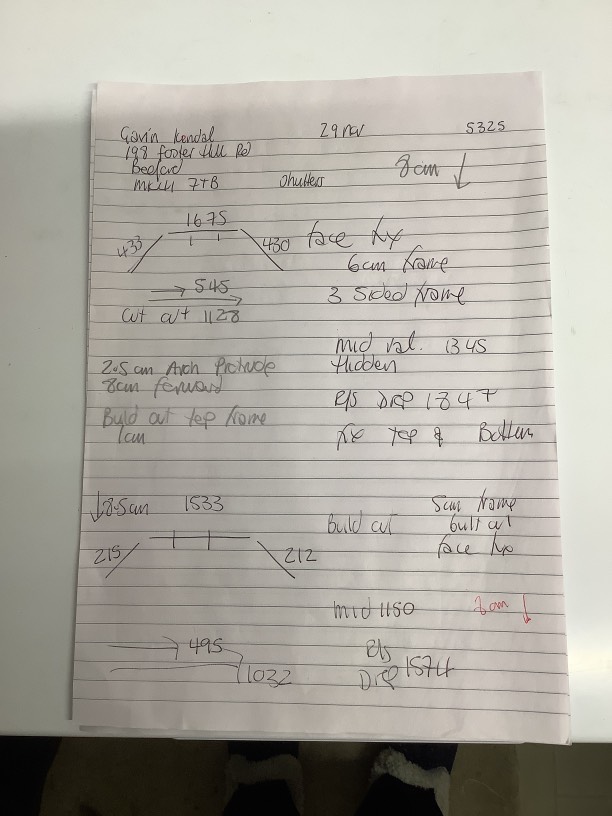 Gavin Kendal 29 nov 5325
198 foster Hill Rd
Bedford
MK41 7TB Shutters 8cm ↓
1675
433 430 face fix
6cm frame
→ 545 3 sided frame
cut out 1128
mid rail. 1345
2.5 cm Arch Protrude Hidden
8cm forward
R/S DRP 1847
Build out top frame
1cm fix top & Bottom
↓8.5cm 1533 5cm frame
Build out built out
215 212 face fix
mid 1150 2cm ↓
→ 495 R/S
1032 DRP 1574